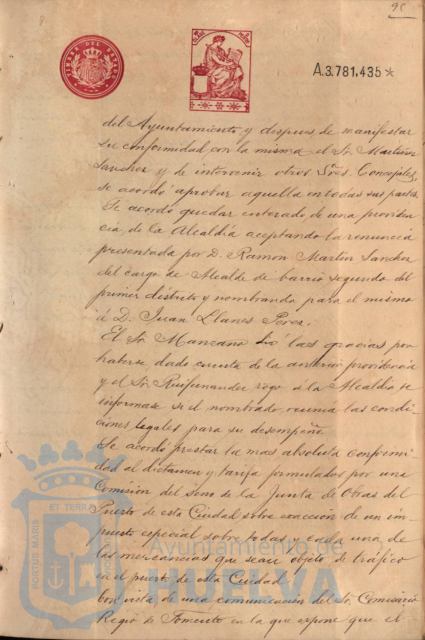 95
A.3.781.435*
TIMBRE DEL ESTADO
del Ayuntamiento y despues de manifestar
su conformidad con la misma el Sr. Martinez
Sanchez y de intervenir otros Sres. Concejales,
se acordó aprobar aquella en todas sus partes.
Se acordó quedar enterado de una providen
cia de la Alcaldia aceptando la renuncia
presentada por D. Ramon Martin Sanchez
del cargo de Alcalde de barrio segundo del
primer distrito y nombrando para el mismo
á D. Juan Llanes Perez.
El Sr. Manzano dió las gracias por
haberse dado cuenta de la anterior providencia
y el Sr. Ruifernandez rogo á la Alcaldia se
informase si el nombrado reunia las condi
ciones legales para su desempeño.
Se acordó prestar la mas absoluta conformi
dad al dictamen y tarifa formulados por una
Comisión del seno de la Junta de Obras del
Puerto de esta Ciudad sobre exacción de un im-
puesto especial sobre todas y cada una de
las mercancias que sean objeto de tráfico
en el puerto de esta Ciudad.
Con vista de una comunicacion del Sr. Comisario
Regio de Fomento en la que expone que el
ET TERRAE
PORTUS MARIS
Ayuntamiento de
HUELVA